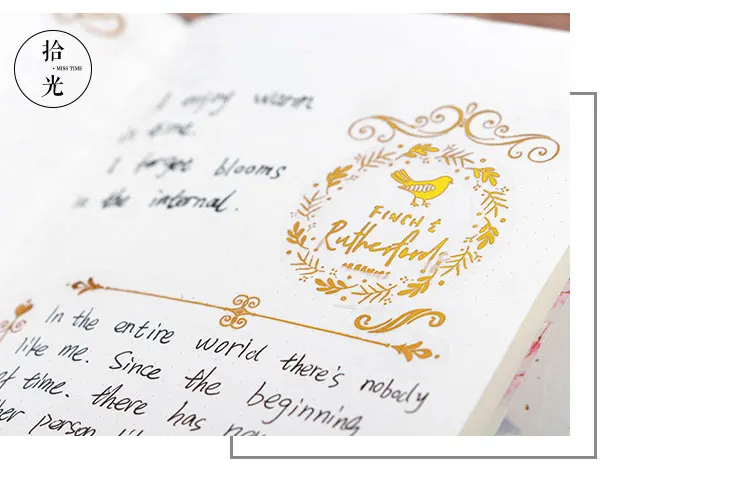 拾
· MISS TIME
光
I enjoy warm
in time.
I forget blooms
in the internal.
FINCH &
Rutherford
ORGANICS
In the entire world there's nobody
like me. Since the beginning
of time. there has
person